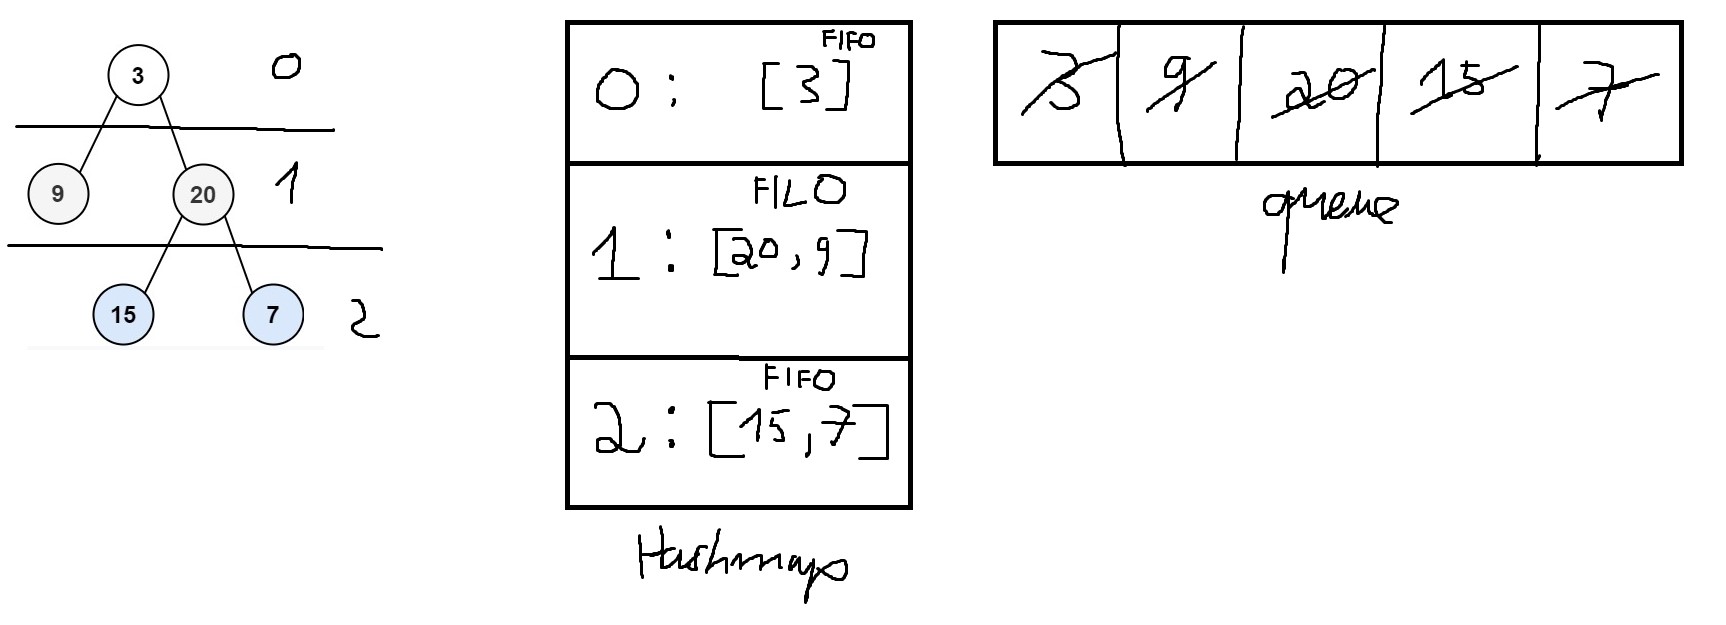 3
0
9
20
1
15
7
2
FIFO
0 : [3]
FILO
1 : [20, 9]
FIFO
2 : [15, 7]
Hashmap
3 9 20 15 7
queue